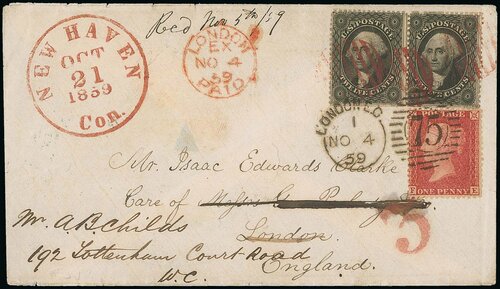 Recd Nov 5th/59
NEW HAVEN
OCT
21
1859
Con.
LONDON
EX
NO 4
59
PAID
U.S. POSTAGE
TWELVE CENTS
U.S. POSTAGE
CENTS
LONDON E.C.
1
NO 4
59
75
POSTAGE
E E
ONE PENNY
Mr. Isaac Edwards Clarke
Care of Messrs G P
London
England
Mr. A B Childs
192 Tottenham Court Road
W.C.
3